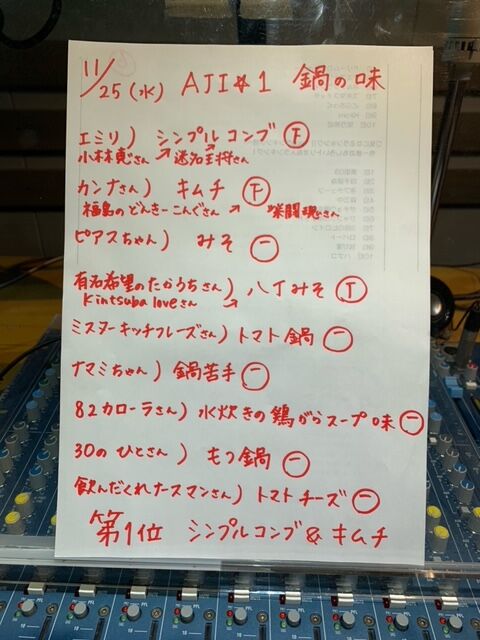 11/25(水) AJI☆1 鍋の味
エミリ) シンプルコンブ 下
小林真さん ↗ 迷名王将さん ↗
カンナさん) キムチ 下
福島のどんきーこんぐさん ↗ 楽闘魂さん ↗
ピアスちゃん) みそ 一
有名希望のたかうちさん) 八丁みそ 丅
Kintsuba loveさん ↗
ミスターキッチフレーズさん) トマト鍋 一
ナマミちゃん) 鍋苦手 一
82カローラさん) 水炊きの鶏がらスープ味 一
30のひとさん) もつ鍋 一
飲んだくれナースマンさん) トマトチーズ 一
第1位 シンプルコンブ&キムチ